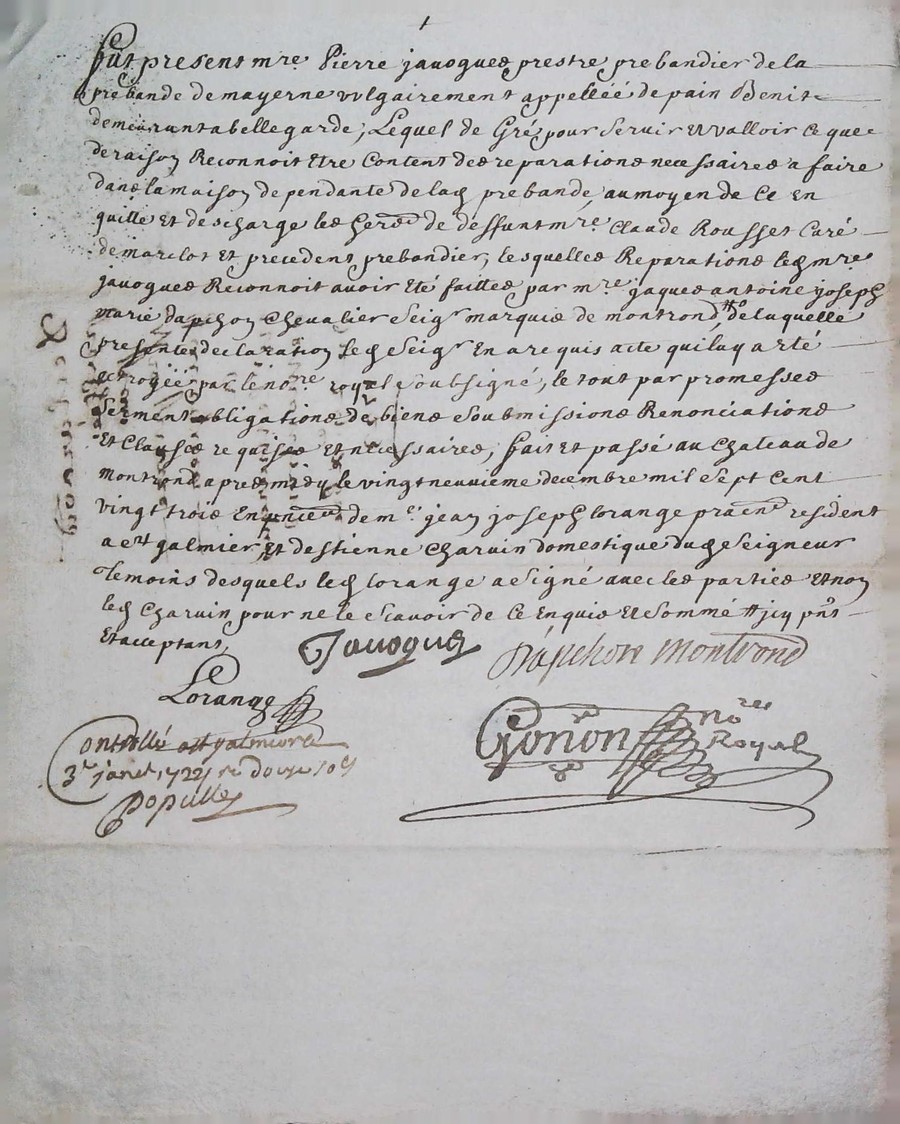 fut present mre Pierre javogues prestre prebandier de la
prebande de mayerne vulgairement appellée de pain Benit
demeurant a bellegarde, Lequel de Gré pour servir et valloir ce que
de raison Reconnoit Etre Content des reparations necessaires a faire
dans la maison dependante de lad prebande, au moyen de Ce En
quitte Et descharge les hers de deffunt mre Claude Rousset Curé
de marclot Et precedent prebandier, lesquelles Reparations led mre
javogues Reconnoit avoir Eté faittes par mre jaques antoine joseph
marie dapchon Chevalier Seigr marquis de montrond # de laquelle
presente declaration led Seigr En a requis acte qui luy a eté
octroyée par le nore royal soubsigné, le tout par promesses
serment obligations de biens soubmissions Renonciations
Et Clauses requises Et necessaires, fait et passé au Chateau de
montrond apres midy le vingt neuvieme decembre mil sept cent
vingt trois En pnces de mr jean joseph lorange praen resident
a st galmier Et d'estienne Charvin domestique dud Seigneur
temoins desquels led lorange a signé avec les parties Et non
led Charvin pour ne le scavoir de ce Enquis Et sommé # icy pnt
Et acceptant,
Javogues
Dapchon Montrond
Lorange
Gonon No re Royal
Controllé a st galmier le
3e janer 1724
Populle